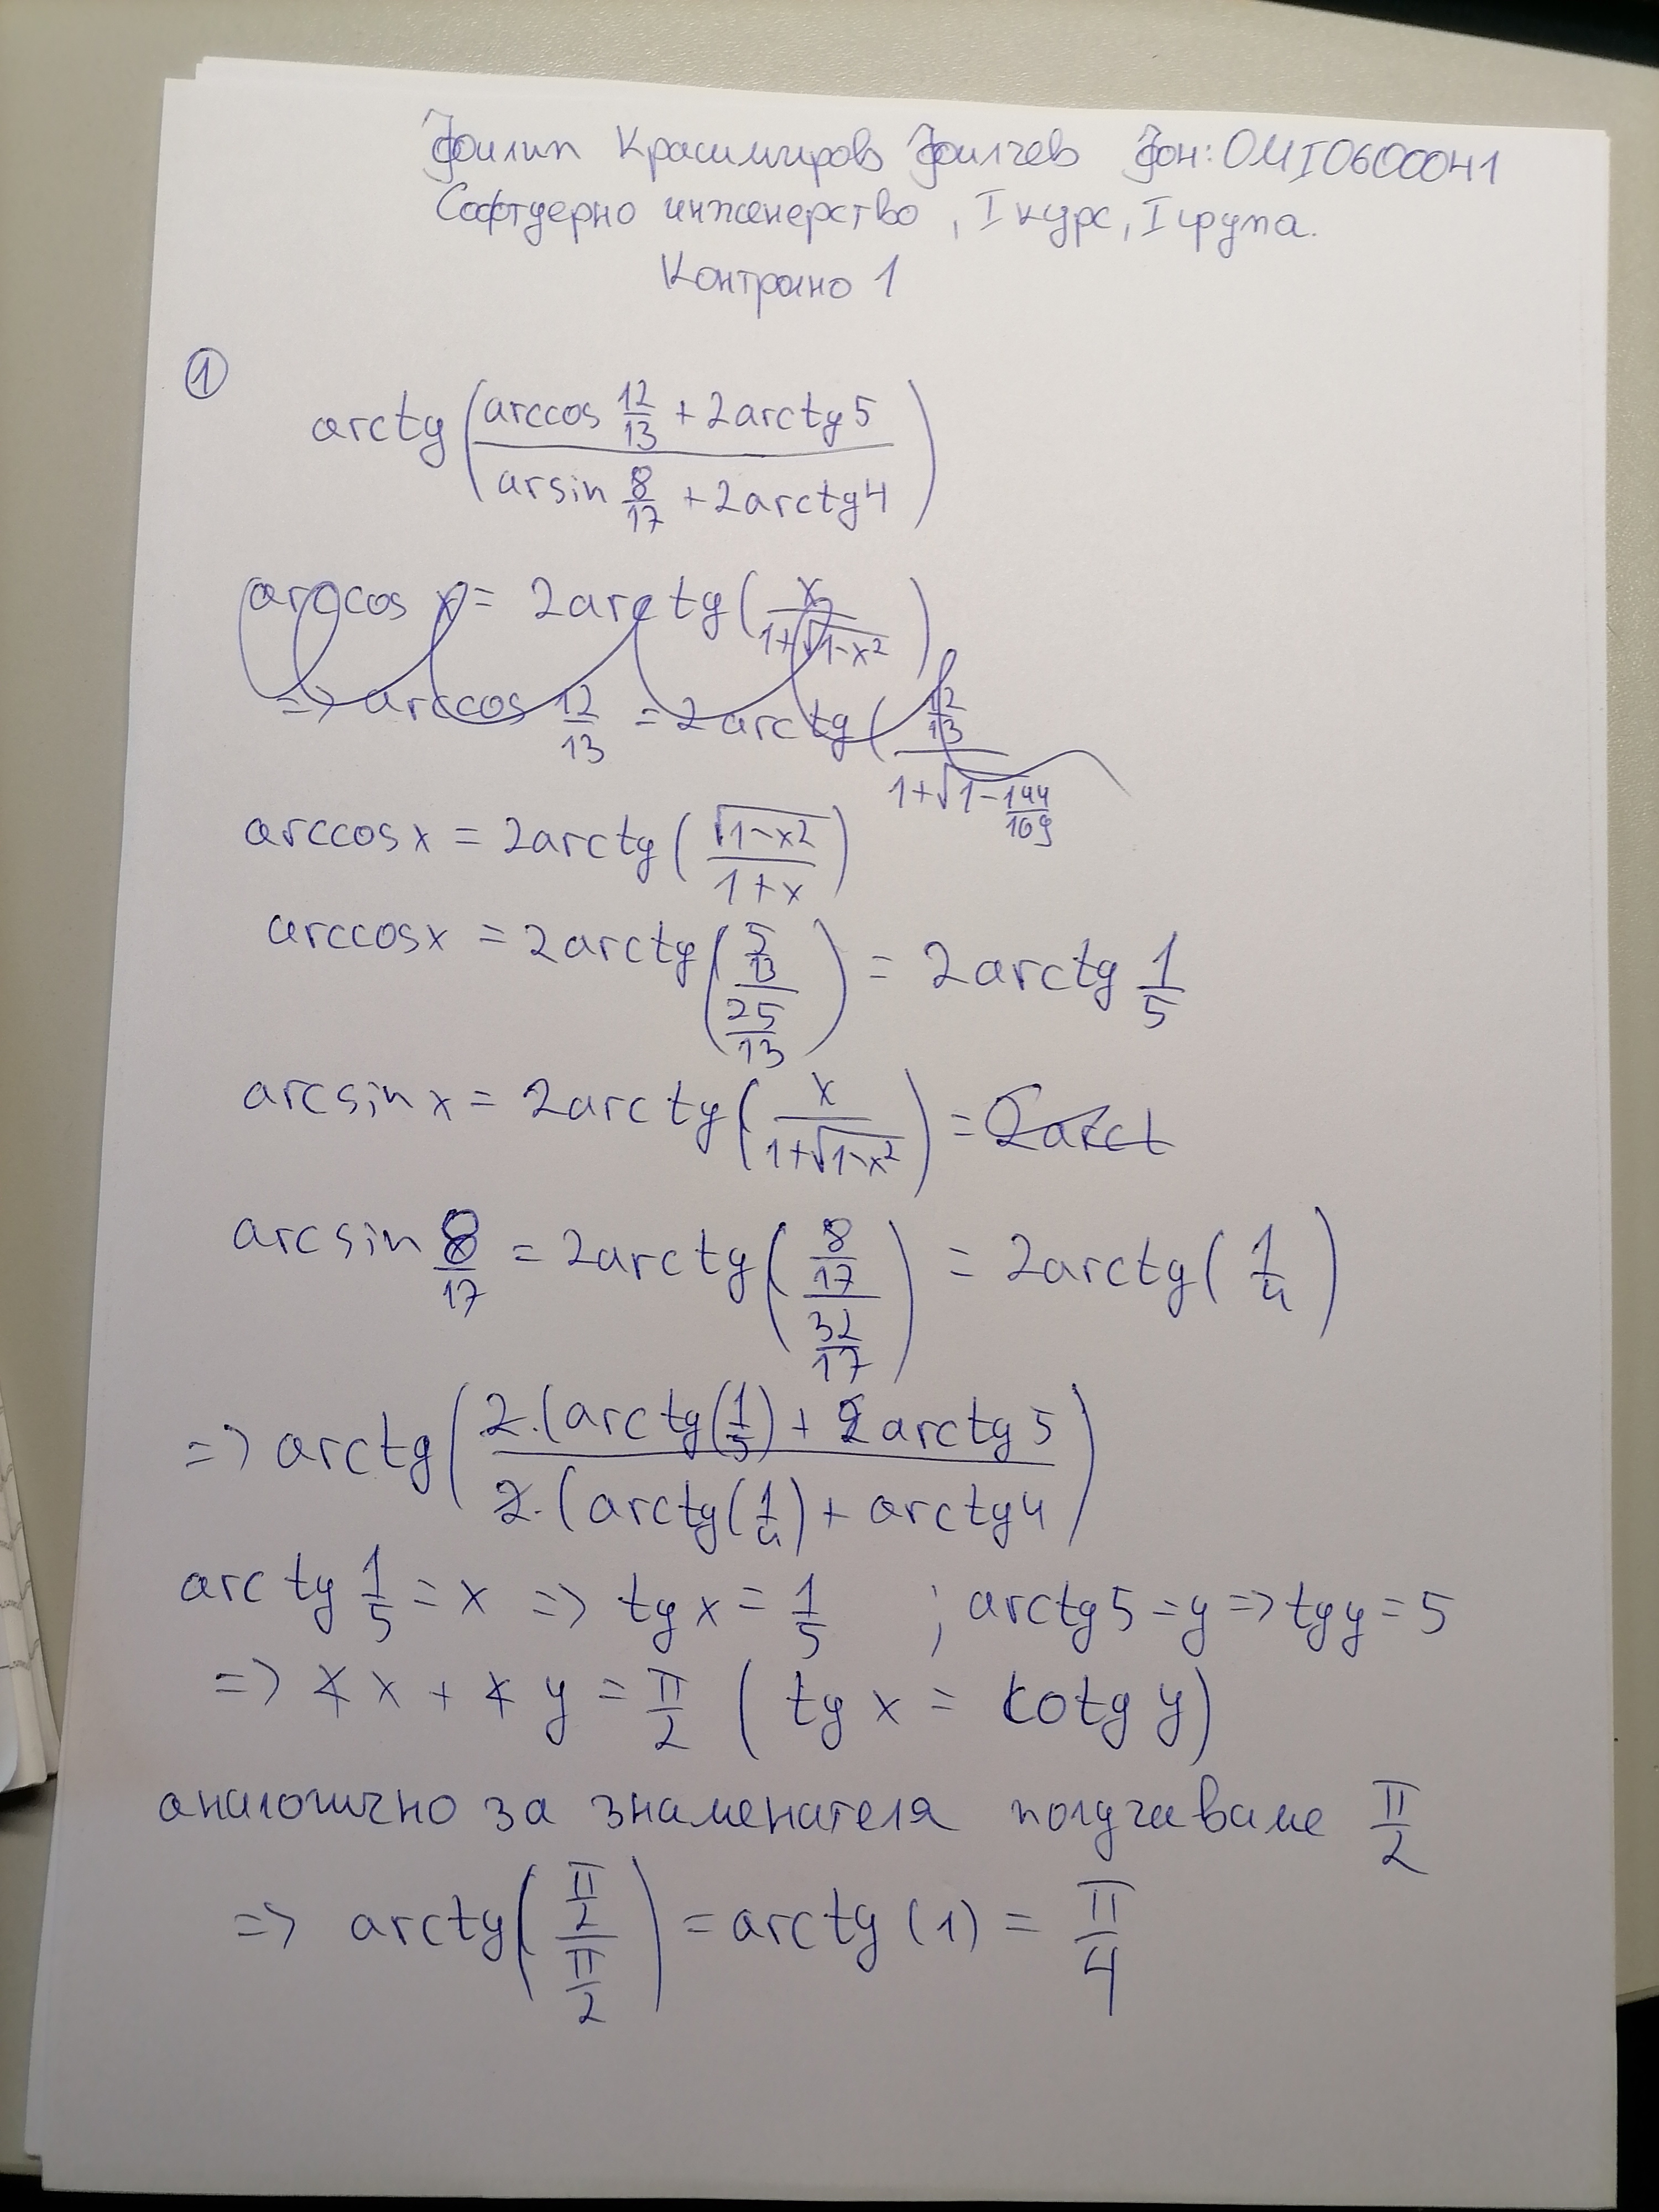 Филип Красимиров Филчев Фон: 0MI0600041
Софтуерно инженерство, I курс, I група.
Контролно 1
①
arctg((arccos 12/13 + 2arctg5)/(arsin 8/17 + 2arctg4))
arccos x = 2arctg(x/(1+√(1-x²)))
=> arccos 12/13 = 2arctg((12/13)/(1+√(1-144/169))
arccosx = 2arctg(√(1-x2)/(1+x))
arccosx = 2arctg((5/13)/(25/13)) = 2arctg 1/5
arcsinx = 2arctg(x/(1+√(1-x²))) = 2arct
arcsin 8/17 = 2arctg((8/17)/(32/17)) = 2arctg(1/4)
=> arctg((2.(arctg(1/5) + 2arctg5)/(2.(arctg(1/4) + arctg4))
arctg 1/5 = x => tg x = 1/5 ; arctg5 = y => tgy = 5
=> ∢ x + ∢ y = π/2 (tg x = cotg y)
аналогично за знаменателя получаваме π/2
=> arctg((π/2)/(π/2)) = arctg(1) = π/4